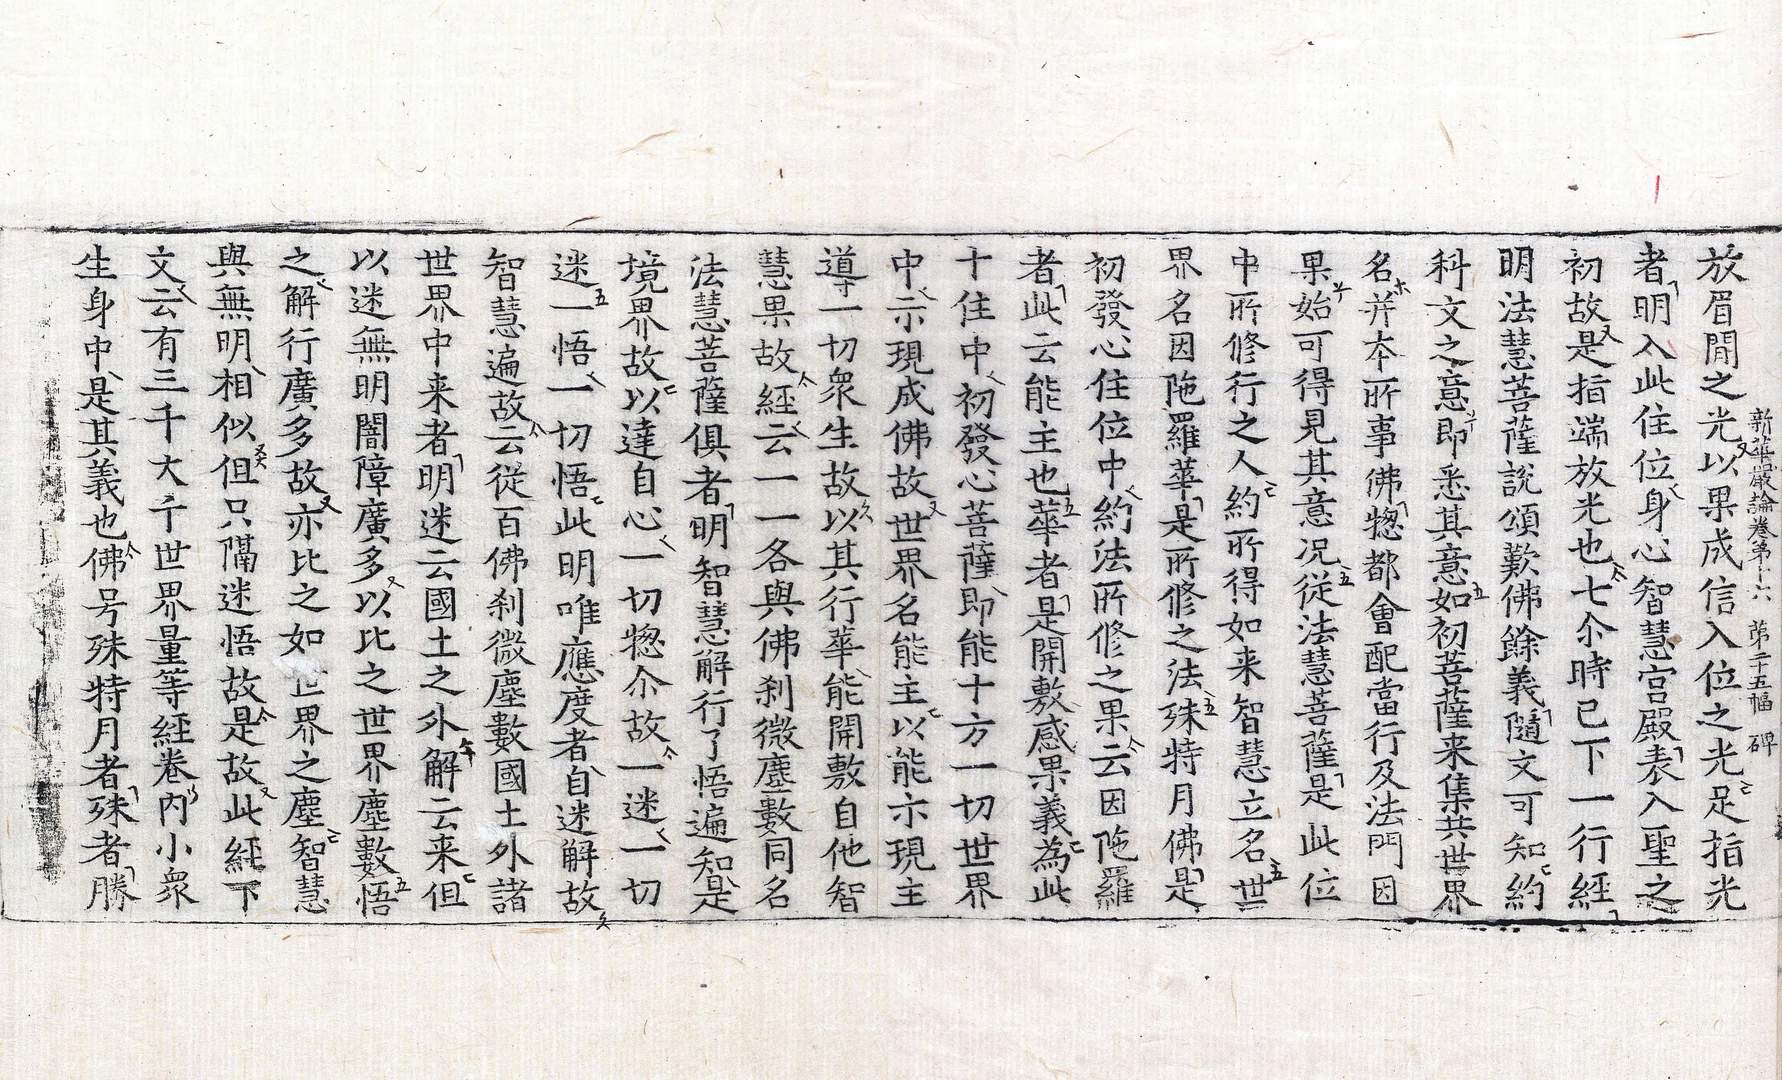 新華嚴論卷第十六　第二十五幅　碑
放眉間之光以果成信入位之光足指光
者明入此住位身心智慧宮殿表入聖之
初故是指端放光也七尒時已下一行經
明法慧菩薩說頌歎佛餘義隨文可知約
科文之意即悉其意如初菩薩来集共世界
名并夲所事佛揔都會配當行及法門因
果始可得見其意况從法慧菩薩是此位
中所修行之人約所得如来智慧立名世
界名因陁羅華是所修之法殊特月佛是
初發心住位中約法所修之果云因陁羅
者此云能主也華者是開敷感果義為此
十住中初發心菩薩即能十方一切世界
中示現成佛故世界名能主以能示現主
導一切衆生故以其行華能開敷自他智
慧果故經云一一各與佛刹微塵數同名
法慧菩薩俱者明智慧解行了悟遍知是
境界故以達自心一切揔尒故一迷一切
迷一悟一切悟此明唯應度者自迷解故
智慧遍故云從百佛刹微塵數國土外諸
世界中来者明迷云國土之外解云来但
以迷無明闇障廣多以比之世界塵數悟
之解行廣多故亦比之如世界之塵智慧
與無明相似但只隔迷悟故是故此經下
文云有三千大千世界量等經卷內小衆
生身中是其義也佛号殊特月者殊者勝